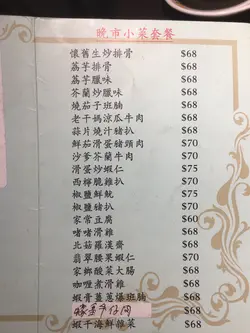 晚市小菜套餐
懷舊生炒排骨 $68
荔芋排骨 $68
荔芋臘味 $68
芥蘭炒臘味 $68
燒茄子班腩 $68
老干媽涼瓜牛肉 $68
蒜片燒汁豬扒 $68
鮮茄滑蛋豬頸肉 $70
沙爹芥蘭牛肉 $70
滑蛋炒蝦仁 $75
西檸脆雞扒 $70
椒鹽鮮魷 $75
椒鹽豬扒 $70
家常豆腐 $60
啫啫滑雞 $68
北菇羅漢齋 $68
翡翠腰果蝦仁 $68
家鄉酸菜大腸 $68
咖喱煮滑雞 $68
蝦膏薑蔥爆班腩 $68
$68
蝦干海鮮雜菜 $68